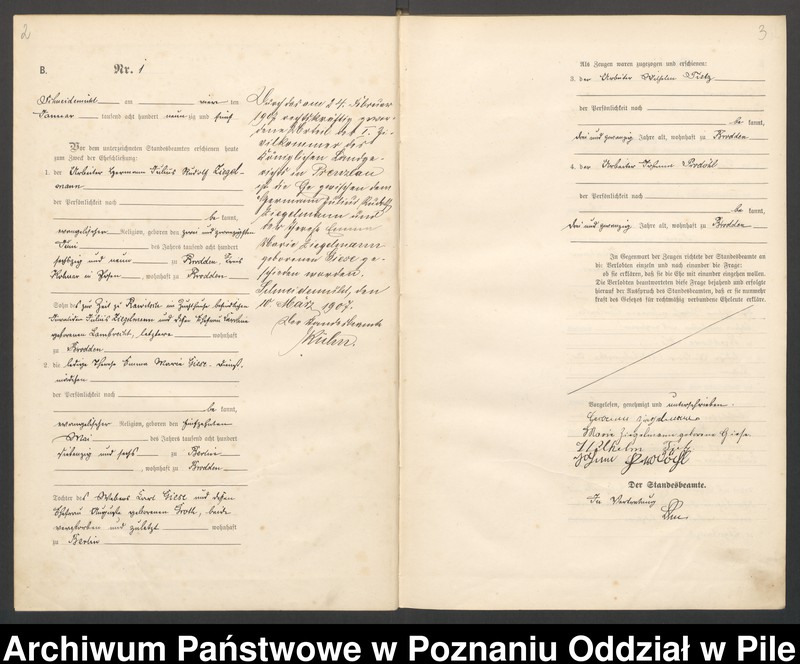 2
B. Nr. 1
Schneidemühl am vier ten
Januar tausend acht hundert neun zig und fünf
Vor dem unterzeichneten Standesbeamten erschienen heute
zum Zweck der Eheschließung:
1. der Arbeiter Hermann Julius Rudolf Ziegel-
mann
der Persönlichkeit nach
be kannt,
evangelischer Religion, geboren den zwei und zwanzigsten
Juni des Jahres tausend acht hundert
sechszig und neun zu Brodden, Kreis
Kolmar in Posen, wohnhaft zu Brodden
Sohn des zur Zeit zu Rawitsch im Zuchthause befindlichen
Julius Ziegelmann und dessen Ehefrau Caroline
geborenen Lambrecht, letztere wohnhaft
zu Brodden
2. die ledige Therese Emma Marie Giese, Dienst-
mädchen
der Persönlichkeit nach
be kannt,
evangelischer Religion, geboren den fünfzehnten
Mai des Jahres tausend acht hundert
siebenzig und sechs zu Berlin
, wohnhaft zu Brodden
Tochter des Webers Carl Giese und dessen
Ehefrau Auguste geborenen Groth, beide
verstorben und zuletzt wohnhaft
zu Berlin
Durch das am 24. Februar
1907 rechtskräftig gewor-
dene Urteil der I. Zi-
vilkammer des
Königlichen Landge-
richts in Prenzlau
ist die Ehe zwischen dem
Hermann Julius Rudolf
Ziegelmann und
der Therese Emma
Marie Ziegelmann
geborenen Giese ge-
schieden worden.
Schneidemühl, den
10. März 1907.
Der Standesbeamte
Kühn.
3
Als Zeugen waren zugezogen und erschienen:
3. der Arbeiter Wilhelm Tietz
der Persönlichkeit nach
be kannt,
drei und zwanzig Jahre alt, wohnhaft zu Brodden
4. der Arbeiter Johann Prodöhl
der Persönlichkeit nach
be kannt,
drei und zwanzig Jahre alt, wohnhaft zu Brodden
In Gegenwart der Zeugen richtete der Standesbeamte an
die Verlobten einzeln und nach einander die Frage:
ob sie erklären, daß sie die Ehe mit einander eingehen wollen.
Die Verlobten beantworteten diese Frage bejahend und erfolgte
hierauf der Ausspruch des Standesbeamten, daß er sie nunmehr
kraft des Gesetzes für rechtmäßig verbundene Eheleute erkläre.
Vorgelesen, genehmigt und unterschrieben
Herman Ziegelmann
Marie Ziegelmann geborene Giese
Wilhelm Tietz
Johann Prodöhl
Der Standesbeamte.
In Vertretung
Archiwum Państwowe w Poznaniu Oddział w Pile